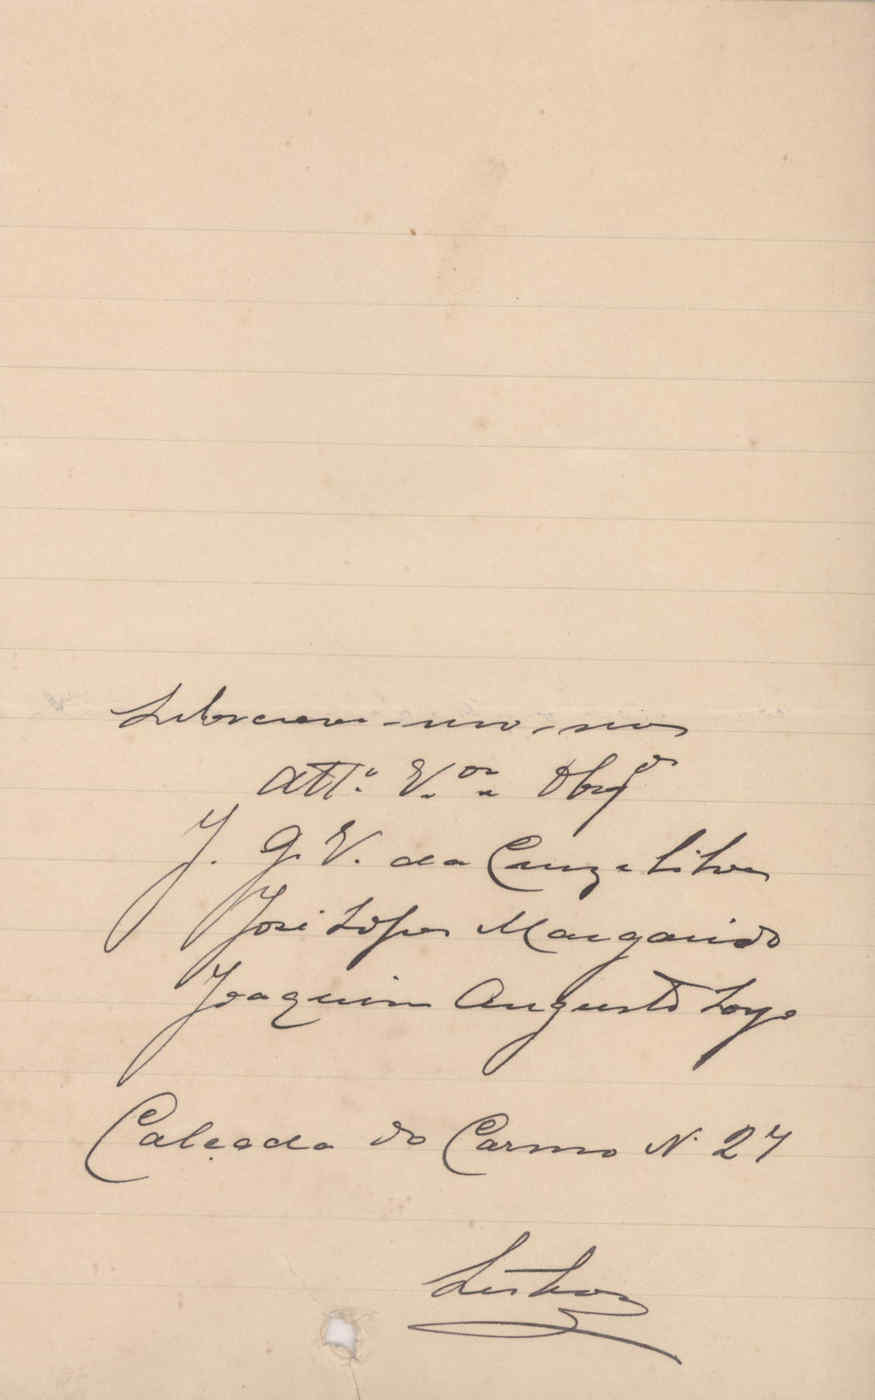 Subscreve-mo-nos
Att.º V.or e Obrgdo
J. G. V. da Cruz e Silva
José Lopes Margarido
Joaquim Augusto Loyo
Calçada do Carmo N. 27
Lisboa